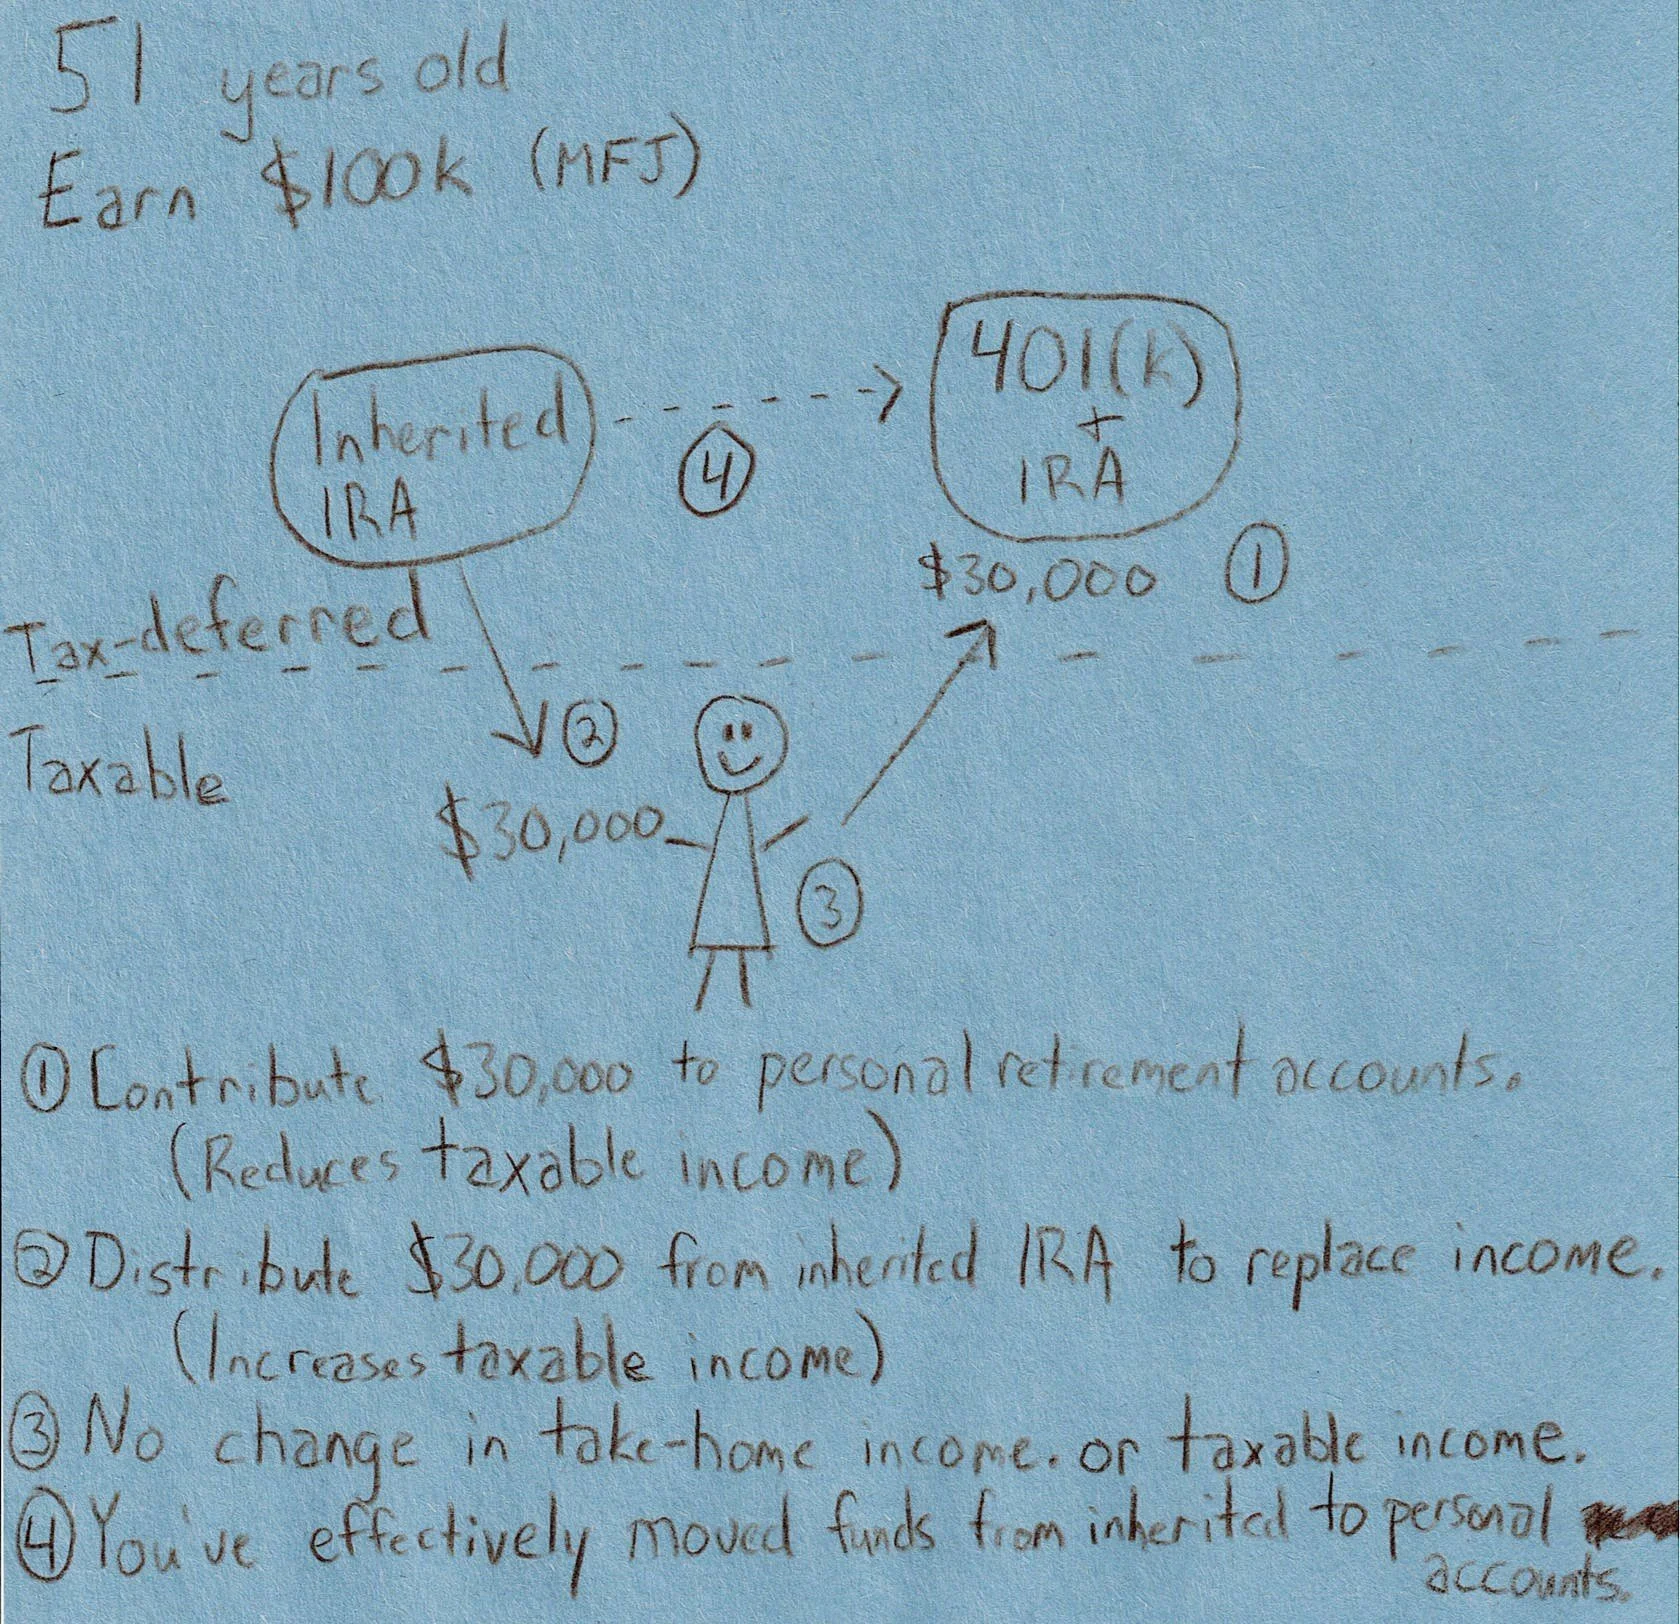 51 years old
Earn $100k (MFJ)
Inherited
IRA
④
401(k)
+
IRA
$30,000 ①
Tax-deferred
Taxable
②
$30,000
③
① Contribute $30,000 to personal retirement accounts.
(Reduces taxable income)
② Distribute $30,000 from inherited IRA to replace income.
(Increases taxable income)
③ No change in take-home income. or taxable income.
④ You've effectively moved funds from inherited to personal
accounts.